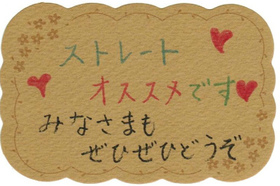 ストレート
オススメです
みなさまも
ぜひぜひどうぞ